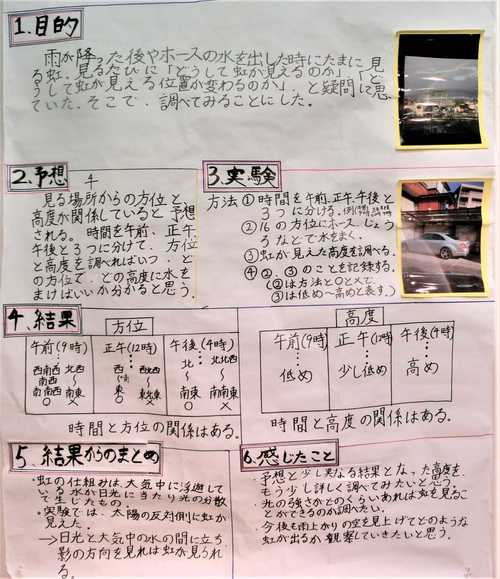 1.目的
雨が降った後やホースの水を出した時にたまに見
る虹。見るたびに「どうして虹が見えるのか」「ど
うして虹が見える位置が変わるのか」、と疑問に思っ
ていた。そこで、調べてみることにした。
2.予想
見る場所からの方位と
高度が関係していると予想
される。時間を午前、正午、
午後と3つに分けて、方位
と高度を調べればいつ、ど
の方位で、どの高度に水を
まけばいいか分かると思う。
3.実験
方法 ①時間を午前、正午、午後と
3つに分ける。
②16の方位にホース、じょう
ろなどで水をまく。
③虹が見えた高度を調べる。
④②、③のことを記録する。
(②は方法と○と×で、
③は低め〜高めと表す。)
4.結果
方位
午前(9時)
西南西 北西
南西 〜
南南西 南東
○ ×
正午(12時)
西 西北西
〜 〜
東 東北東
○ ×
午後(4時)
北 北北西
〜 〜
南東 南南東
○ ×
時間と方位の関係はある。
高度
午前(9時)
低め
正午(12時)
少し低め
午後(4時)
高め
時間と高度の関係はある。
5.結果からのまとめ
・虹の仕組みは、大気中に浮遊して
いる水が日光に当たり光の分散
で生じたもの。
・実験では、太陽の反対側に虹が
見えた。
→日光と大気中の水の間に立ち、
影の方向を見れば虹が見られ
る。
6.感じたこと
・予想と少し異なる結果となった高度を、
もう少し詳しく調べてみたいと思う。
・光の強さがどのくらいあれば虹を見るこ
とができるのか調べたい。
・今後も雨上がりの空を見上げてどのような
虹が出るか観察していきたいと思う。